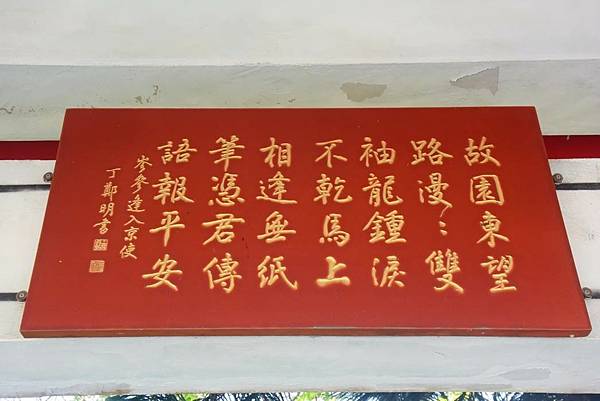 故園東望
路漫〻雙
袖龍鍾淚
不乾馬上
相逢無紙
筆憑君傳
語報平安
岑參逢入京使
丁鄭明書